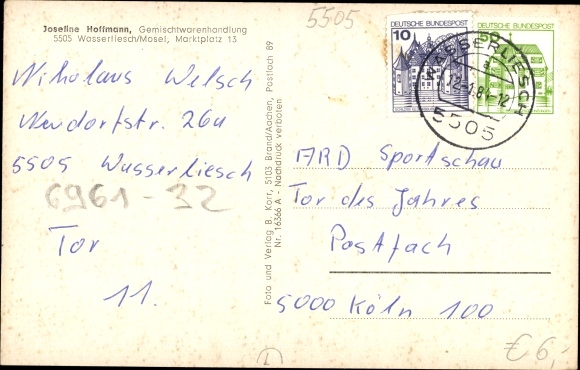 5505
Josefine Hoffmann, Gemischtwarenhandlung
5505 Wasserliesch/Mosel, Marktplatz 13
DEUTSCHE BUNDESPOST
10
DEUTSCHE BUNDESPOST
50
WASSERLIESCH
12-1.84-12
5505
Nikolaus Welsch
Neudorfstr. 26a
5505 Wasserliesch
6961-32
Tor
11.
Foto und Verlag B. Korr, 5103 Brand/Aachen, Postfach 89
Nr. 16366 A - Nachdruck verboten
ARD Sportschau
Tor des Jahres
Postfach
5000 Köln 100
€ 6,-